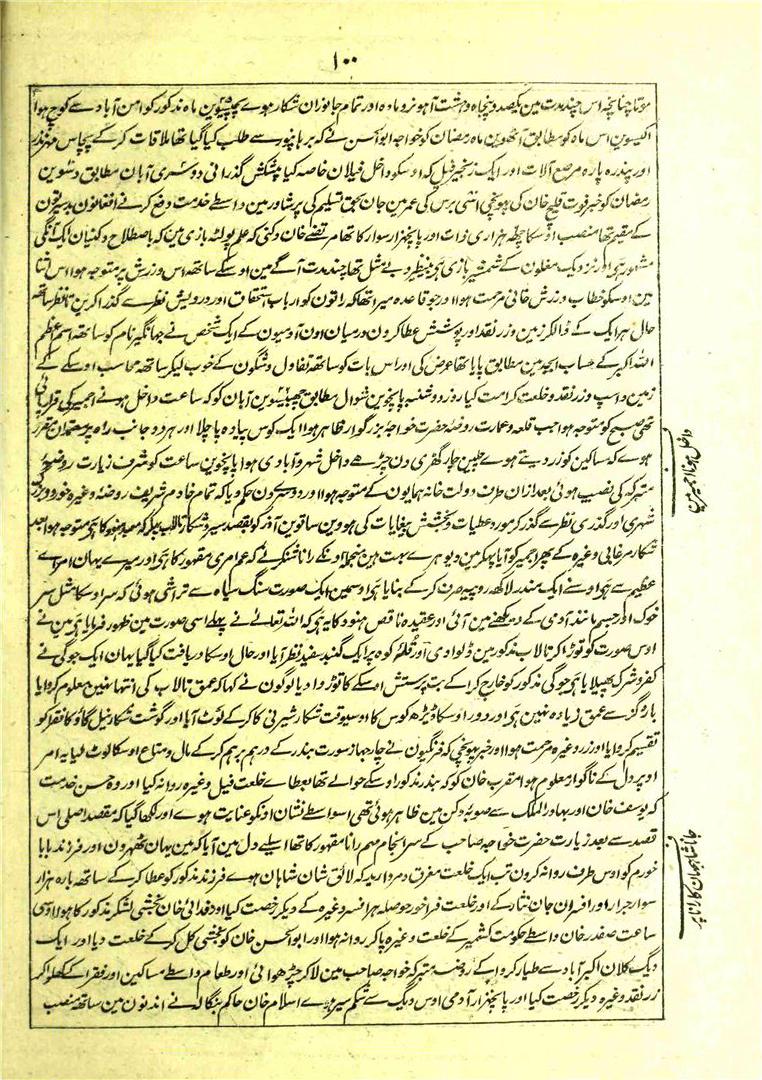 ۱۰۰
ہوتا چنانچہ اس چند مدت مین یکصد و پنجاہ و ہشت آہو نر و مادہ اور تمام جانوران شکار ہوے پچیسوین ماہ مذکور کو امن آباد سے کوچ ہوا
اکیسوین اس ماہ کو مطابق آٹھوین ماہ رمضان کو خواجہ ابوالحسن نے کہ برہانپور سے طلب کیا گیا تھا ملاقات کرکے پچاس مہر نذر
اور پندرہ پارہ مرصع آلات اور ایک زنجیر فیل کہ اوسکو داخل فیلان خاصہ کیا پیشکش گذرانی دوسری آبان مطابق دسوین
رمضان کو خبر فوت قلیچ خان کی پہونچی اسّی برس کی عمر مین جان بحق تسلیم کی پرشاور مین واسطے خدمت دفع کرنے افغانون
کے مقیم تھا منصب اوسکا چھہ ہزاری ذات اور پانچہزار سوار کا تھا مرتضے خان دکنی کہ علم پولٹہ بازی مین کہ باصطلاح دکنیان ایک آنگی
مشہور ہی اور نزدیک مغلون کے شمشیر بازی ہی بینظیر و بے مثل تھا چند مدت آگے مین اوسکے ساتھہ اس ورزش پر متوجہ ہوا اس اثنا
مین اوسکو خطاب ورزش خانی مرحمت ہوا اور جو قاعدہ میرا تھا کہ راتون کو ارباب استحقاق اور درویش نظر سے گذرا کرین تا نظر ساتھہ
حال ہر ایک کے ڈالکر زمین و زر نقد اور پوشش عطا کرون درمیان اون آدمیون کے ایک شخص نے جہانگیر نام کو ساتھہ اسم اعظم
اللہ اکبر کے حساب ابجد مین مطابق پایا تھا عرض کی اور اس بات کو ساتھہ تفاول و شگون کے خوب لیکر ساتھہ محاسب اوسکے کے
زمین و اسپ و زر نقد و خلعت کرامت کیا روز دوشنبہ پانچوین شوال مطابق چھبیسوین آبان کو کہ ساعت داخل ہونے اجمیر کی قرار پائی
تھی صبح کو متوجہ ہوا جب قلعہ و عمارت روضۂ حضرت خواجۂ بزرگوار ظاہر ہوا ایک کوس پیادہ پا چلا اور ہر دو جانب راہ پر معتمدان مقرر
ہوے کہ ساکین کو زر دیتے ہوے چلین چار گھڑی دن چڑھے داخل شہر و آبادی ہوا پانچوین ساعت کو شرف زیارت روضۂ
متبرکہ کی نصیب ہوئی بعد ازان طرف دولت خانہ ہمایون کے متوجہ ہوا اور دوسرے دن حکم دیا کہ تمام خادم شریف روضہ وغیرہ خورد و بزرگ
شہری اور گذری نظر سے گذر کر مورد عطیات و بخشش بیغایات کی ہووین ساتوین آذر کو بقصد سیر و شکار تالاب پہکر کہ معبد ہنود کا ہی متوجہ ہوا بعد
شکار مرغابی وغیرہ کے پھر اجمیر کو آیا پہکر مین دیوہرے بہت ہین منجملہ اونکے رانا شنکر نے کہ عمو امری مقہور کا ہی اور میرے یہان امراے
عظیم سے ہی اوسنے ایک مندر لاکھہ روپیہ صرف کرکے بنایا ہی اوسمین ایک صورت سنگ سیاہ سے تراشی ہوئی کہ سر اوسکا مثل سر
خوک اور جسم مانند آدمی کے دیکھنے مین آئی اور عقیدۂ ناقص ہنود کا یہ ہی کہ اللہ تعالےٰ نے پہلے اسی صورت مین ظہور فرمایا ہی مین نے
اوس صورت کو توڑا کر تالاب مذکور مین ڈلوا دی اور قلۂ کوہ پر ایک گنبد سفید نظر آیا اور حال اوسکا دریافت کیا گیا یہان ایک جوگی نے
کفر و شرک پھیلایا ہی جوگی مذکور کو خارج کرا کے بت پرستش اوسکے کا توڑ وادیا لوگون نے کہا کہ عمق تالاب کی انتہا نہین معلوم کروایا
بارہ گز سے عمق زیادہ نہین ہی اور دور اوسکا ڈیڑھ کوس کا اوسیوقت شکار شیرنی کا کرکے لوٹ آیا اور گوشت شکار نیل گاؤ کا فقرا کو
تقسیم کروایا اور زر وغیرہ مرحمت ہوا اور خبر پہونچی کہ فرنگیون نے چار جہاز سورت بندر کے درہم برہم کرکے مال و متاع اوسکا لوٹ لیا یہ امر
اوپر دل کے ناگوار معلوم ہوا مقرب خان کو کہ بندر مذکور اوسکے حوالے تھا بعطاے خلعت فیل وغیرہ روانہ کیا اور وہ حسن خدمت
کہ یوسف خان اور بہادر الملک سے صوبۂ دکن مین ظاہر ہوئی تھی اسواسطے نشان اونکو عنایت ہوے اور لکھا گیا کہ مقصد اصلی اس
قصد سے بعد زیارت حضرت خواجہ صاحب کے سرانجام مہم رانا مقہور کا تھا اسلیے دل مین آیا کہ مین یہان ٹھہرون اور فرزند بابا
خورم کو اوس طرف روانہ کرون تب ایک خلعت مغرق و مروارید کہ لائق شان شاہان ہوے فرزند مذکور کو عطا کرکے ساتھہ بارہ ہزار
سوار جرار اور افسران جان نثار کے اور خلعت فراخور حوصلہ ہر افسر وغیرہ کے دیکر رخصت کیا اور فدائی خان بخشی لشکر مذکور کا ہوا اوسی
ساعت صفدر خان واسطے حکومت کشمیر کے خلعت وغیرہ پا کر روانہ ہوا اور ابوالحسن خان کو بخشی کل کرکے خلعت دیا اور ایک
دیگ کلان اکبرآباد سے طیار کرواکے روضۂ متبرکہ خواجہ صاحب مین لاکر چڑھوائی اور طعام واسطے مساکین اور فقرا کے کھلوا کر
زر نقد وغیرہ دیکر رخصت کیا اور پانچہزار آدمی اوس دیگ سے شکم سیر ہوے اسلام خان حاکم بنگالہ نے اندنون مین ساتھہ منصب
داخل ہونا اجمیر مین
جانا شاہجہان کا رانا پر